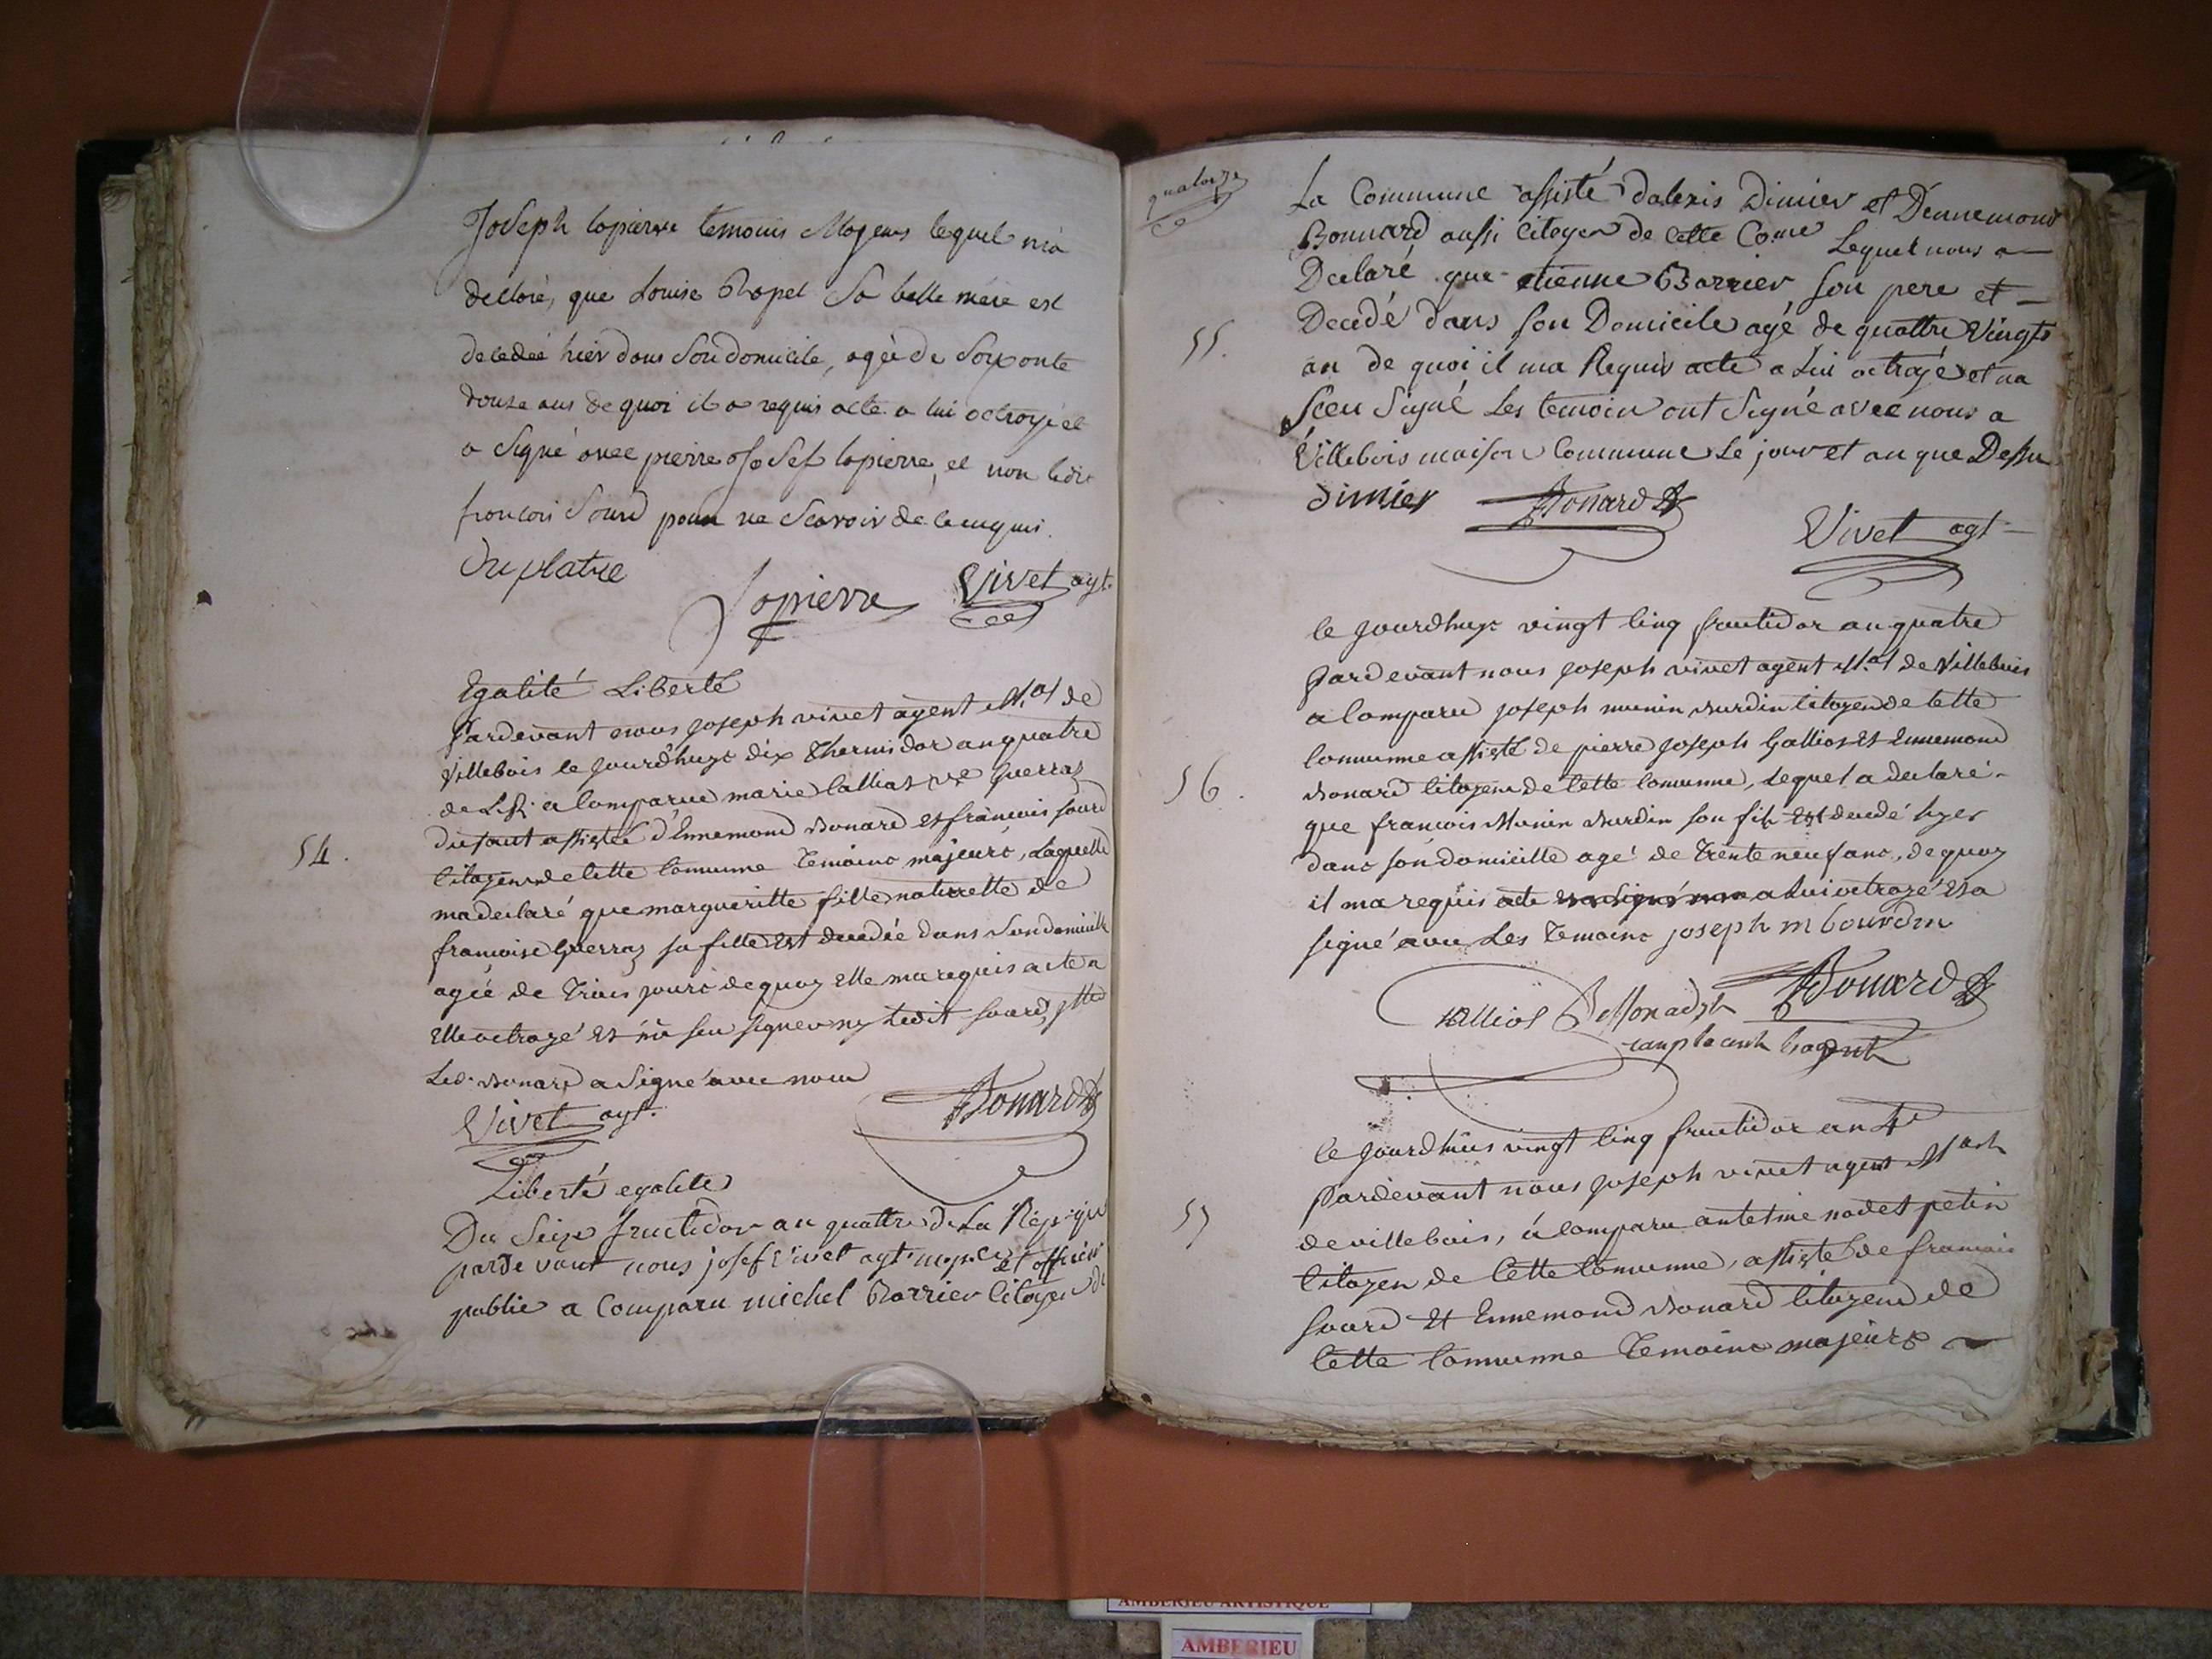 Joseph lapierre temoins Majeurs lequel m'a
declaré, que Louise Ropet Sa belle mére est
decedée hier dans Son domicile, agée de Soixante
douze ans de quoi il a requis acte a lui octroyé et
a Signé avec pierre Josef lapierre, et non ledit
francois Sourd pour ne Scavoir de ce enquis.
Duplatre
Lapierre
Vivet agt.
Egalité Liberté
Pardevant nous joseph vivet agent M.al de
villebois le jourd'huys dix Thermidor an quatre
de L.R. a Comparue marie Callias vve Guerraz
54.
du saut assistée d'Ennemond Bonard et françois sourd
Citoyens de Cette Commune Temoins majeurs, Laquelle
ma declaré que margueritte fille naturelle de
francoise Guerraz sa fille Est decedée dans Son domicille
agée de Trois jours de quoy Elle ma requis acte a
Elle octroyé Et n'a seu signer ny Ledit sourd,
Led. Bonard a Signé avec nous
Vivet agt.
Bonard
Liberté egalité
Du Seize fructidor an quattre de La Rep.que
parde vant nous josef Vivet agt mpal et officier
public a Comparu michel Barrier Citoyen de
quatorze
La Commune assisté dalexis Dimier et Dennemond
Bonnard aussi Citoyen de Cette Come Lequel nous a
Declaré que etienne Barrier son pere et
55.
Decedé dans son Domicile agé de quattre Vingts
an de quoi il ma Requis acte a Lui octroyé et na
sceu Signé Les temoin ont Signé avec nous a
Villebois maison Commune Le jour et an que Dessu
dimier
Bonard
Vivet agt
le jourdhuys vingt Cinq fructidor an quatre
Pardevant nous joseph vivet agent M.al de Villebois
a Comparu joseph munin Burdin Citoyen de Cette
Commune assisté de pierre joseph Galliot Et Ennemond
56.
Bonard Citoyens de Cette Commune, Lequel a declaré
que francois Munin Burdin son fils Est decedé hyer
dans son domicille agé de Trente neuf ans, de quoy
il ma requis acte a Lui octroyé Et a
signé avec Les Temoins joseph m bourdin
Galliot
Bonard
le jourdhuis vingt Cinq fructidor an 4e
Pardevant nous joseph vivet agent M.al
57
de villebois, a Comparu antelme nodet petin
Citoyen de Cette Commune, assisté de francois
sourd Et Ennemond Bonard Citoyens de
Cette Commune Temoins majeurs
AMBERIEU ARTISTIQUE
AMBERIEU